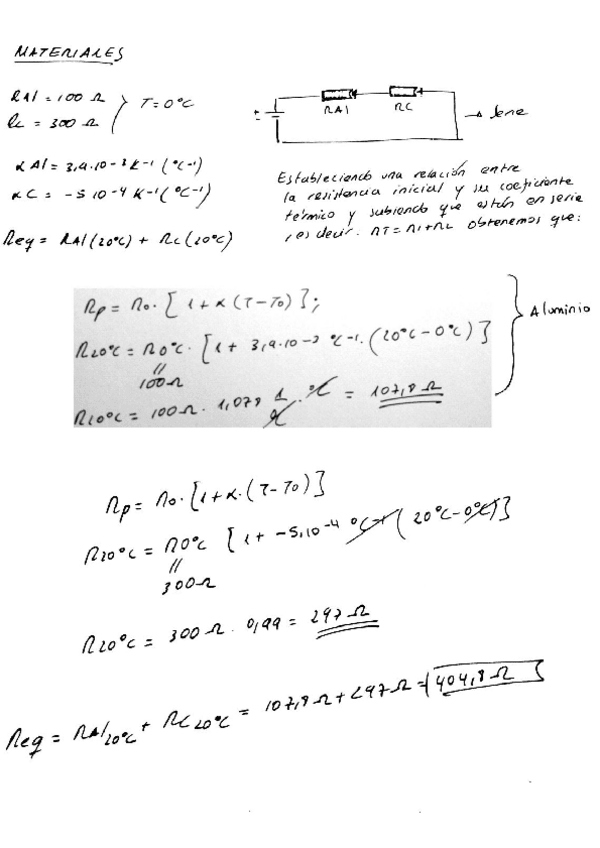 MATERIALES
RAl = 100 Ω
Rc = 300 Ω } T = 0°C
RAl RC → Serie
αAl = 3,9·10-3 K-1 (°C-1)
αC = -5 10-4 K-1 (°C-1)
Req = RAl(20°C) + Rc(20°C)
Estableciendo una relación entre
la resistencia inicial y su coeficiente
térmico y sabiendo que están en serie
es decir. RT = R1+R2 obtenemos que:
Rp = R0·[1 + α(T-T0)];
R20°C = R0°C·[1 + 3,9·10-3 °C-1·(20°C-0°C)]
100Ω
R20°C = 100Ω · 1,078 1/°C · °C = 107,8 Ω
Aluminio
Rp = R0·[1+α·(T-T0)]
R20°C = R0°C [1 + -5·10-4 °C-1 (20°C-0°C)]
300Ω
R20°C = 300 Ω · 0,99 = 297 Ω
Req = RAl20°C + RC20°C = 107,8 Ω + 297 Ω = 404,8 Ω